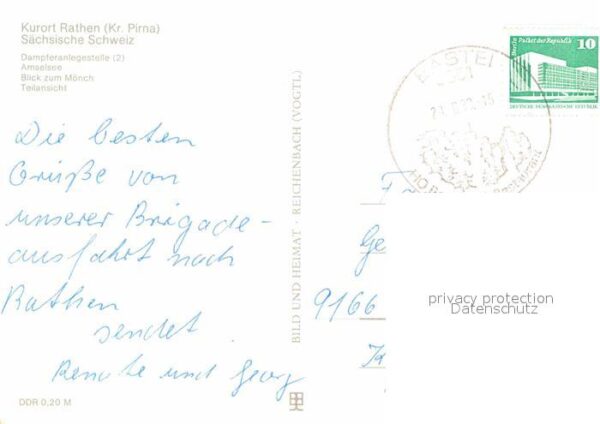 Kurort Rathen (Kr. Pirna)
Sächsische Schweiz
Dampferanlegestelle (2)
Amselsee
Blick zum Mönch
Teilansicht
Die besten
Grüße von
unserer Brigade-
ausfahrt nach
Rathen
sendet
Renate und Georg
DDR 0,20 M
BILD UND HEIMAT · REICHENBACH (VOGTL.)
BASTEI
Berlin Palast der Republik
10
DEUTSCHE DEMOKRATISCHE REPUBLIK
Ge
9166
privacy protection
Datenschutz